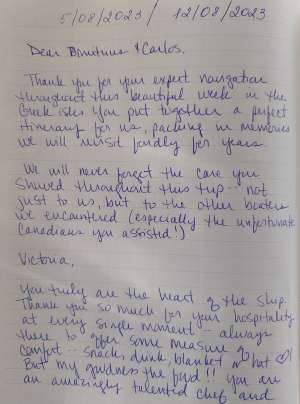 5/08/2023 / 12/08/2023
Dear Dimitrius & Carlos,
Thank you for your expert navigation
throughout this beautiful week in the
Greek isles. You put together a perfect
itinerary for us, packing in memories
we will revisit fondly for years.
We will never forget the care you
showed throughout this trip... not
just to us, but to the other boaters
we encountered (especially the unfortunate
Canadians you assisted!)
Victoria,
You truly are the heart of the ship.
Thank you so much for your hospitality
at every single moment - always
there to offer some measure of
comfort - snacks, drink, blanket or hat
But my goodness the food!! You are
an amazingly talented chef and